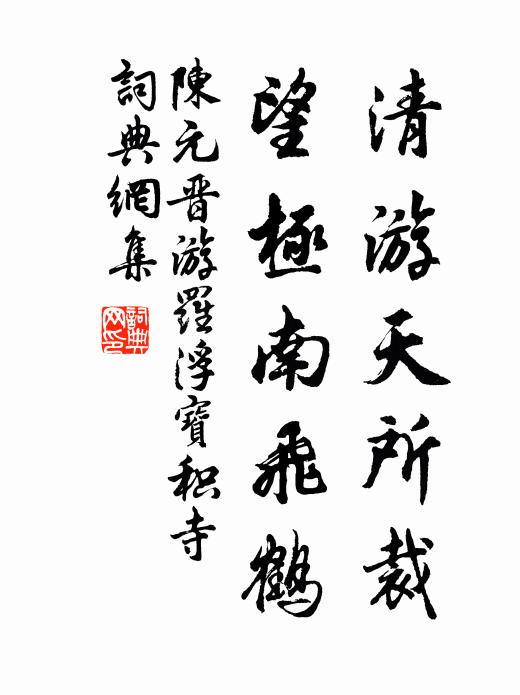 清游天所裁
望極南飛鶴
陳元晋游羅浮寶积寺
詞典網集
詞典网印